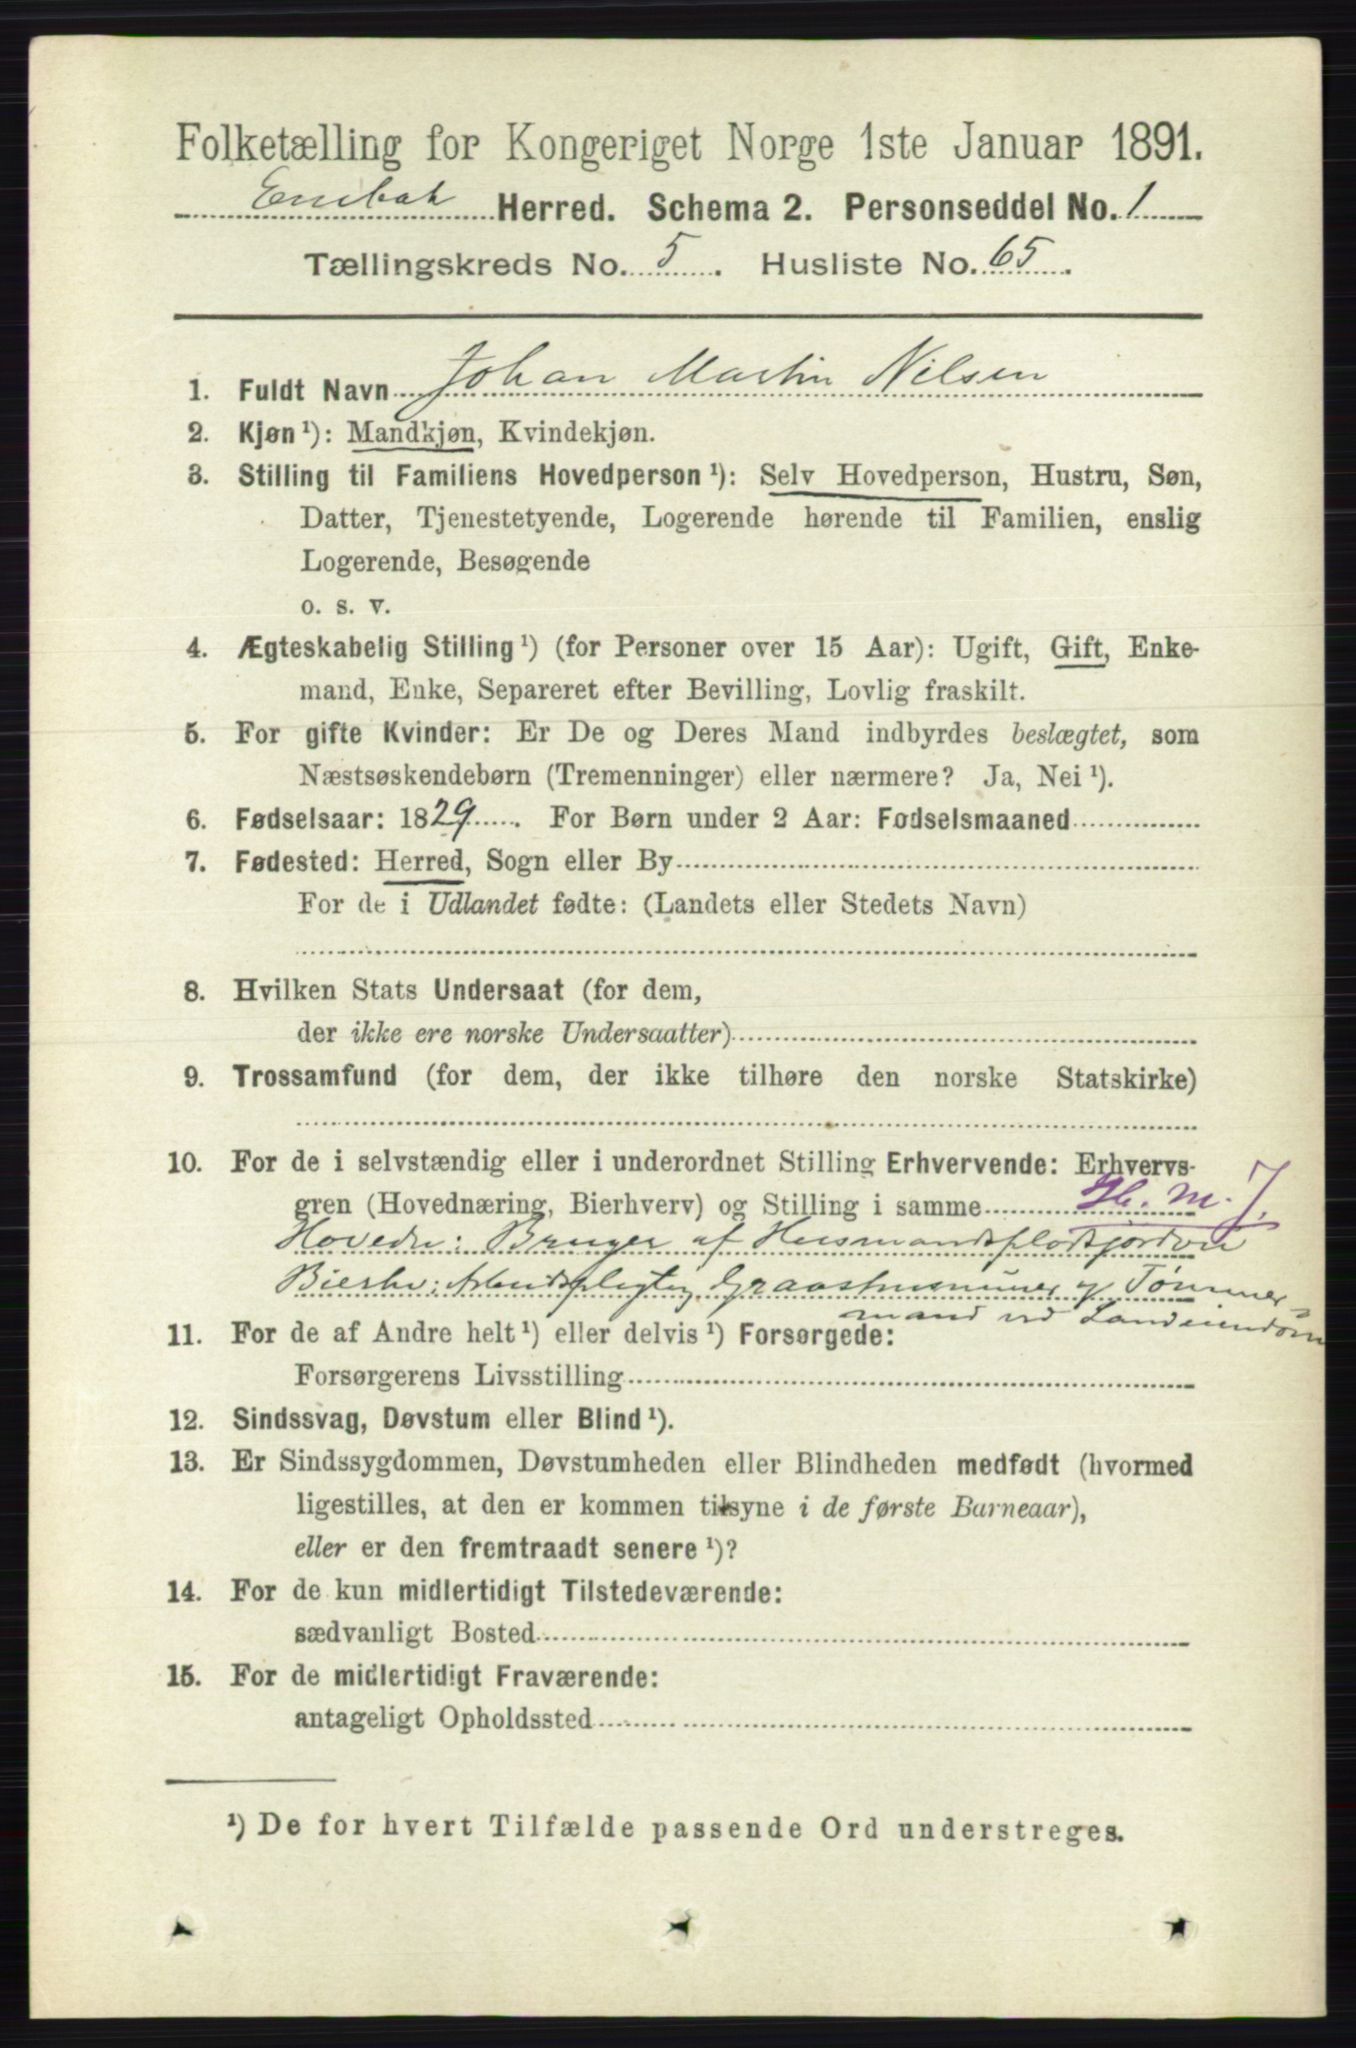 Folketælling for Kongeriget Norge 1ste Januar 1891.
Enebak Herred. Schema 2. Personseddel No. 1
Tællingskreds No. 5. Husliste No. 65.
1. Fuldt Navn Johan Martin Nilsen
2. Kjøn ¹): Mandkjøn, Kvindekjøn.
3. Stilling til Familiens Hovedperson ¹): Selv Hovedperson, Hustru, Søn,
Datter, Tjenestetyende, Logerende hørende til Familien, enslig
Logerende, Besøgende
o. s. v.
4. Ægteskabelig Stilling ¹) (for Personer over 15 Aar): Ugift, Gift, Enke-
mand, Enke, Separeret efter Bevilling, Lovlig fraskilt.
5. For gifte Kvinder: Er De og Deres Mand indbyrdes beslægtet, som
Næstsøskendebørn (Tremenninger) eller nærmere? Ja, Nei ¹).
6. Fødselsaar: 1829. For Børn under 2 Aar: Fødselsmaaned
7. Fødested: Herred, Sogn eller By
For de i Udlandet fødte: (Landets eller Stedets Navn)
8. Hvilken Stats Undersaat (for dem,
der ikke ere norske Undersaatter)
9. Trossamfund (for dem, der ikke tilhøre den norske Statskirke)
10. For de i selvstændig eller i underordnet Stilling Erhvervende: Erhvervs-
gren (Hovednæring, Bierhverv) og Stilling i samme Hb. m. J.
Hovedn: Bruger af Husmandsplads jordvei
Bierhv: Arbeidspligtig Graashusmand og Tømmer-
mand ved Landeiendom
11. For de af Andre helt ¹) eller delvis ¹) Forsørgede:
Forsørgerens Livsstilling
12. Sindssvag, Døvstum eller Blind ¹).
13. Er Sindssygdommen, Døvstumheden eller Blindheden medfødt (hvormed
ligestilles, at den er kommen tilsyne i de første Barneaar),
eller er den fremtraadt senere ¹)?
14. For de kun midlertidigt Tilstedeværende:
sædvanligt Bosted
15. For de midlertidigt Fraværende:
antageligt Opholdssted
¹) De for hvert Tilfælde passende Ord understreges.